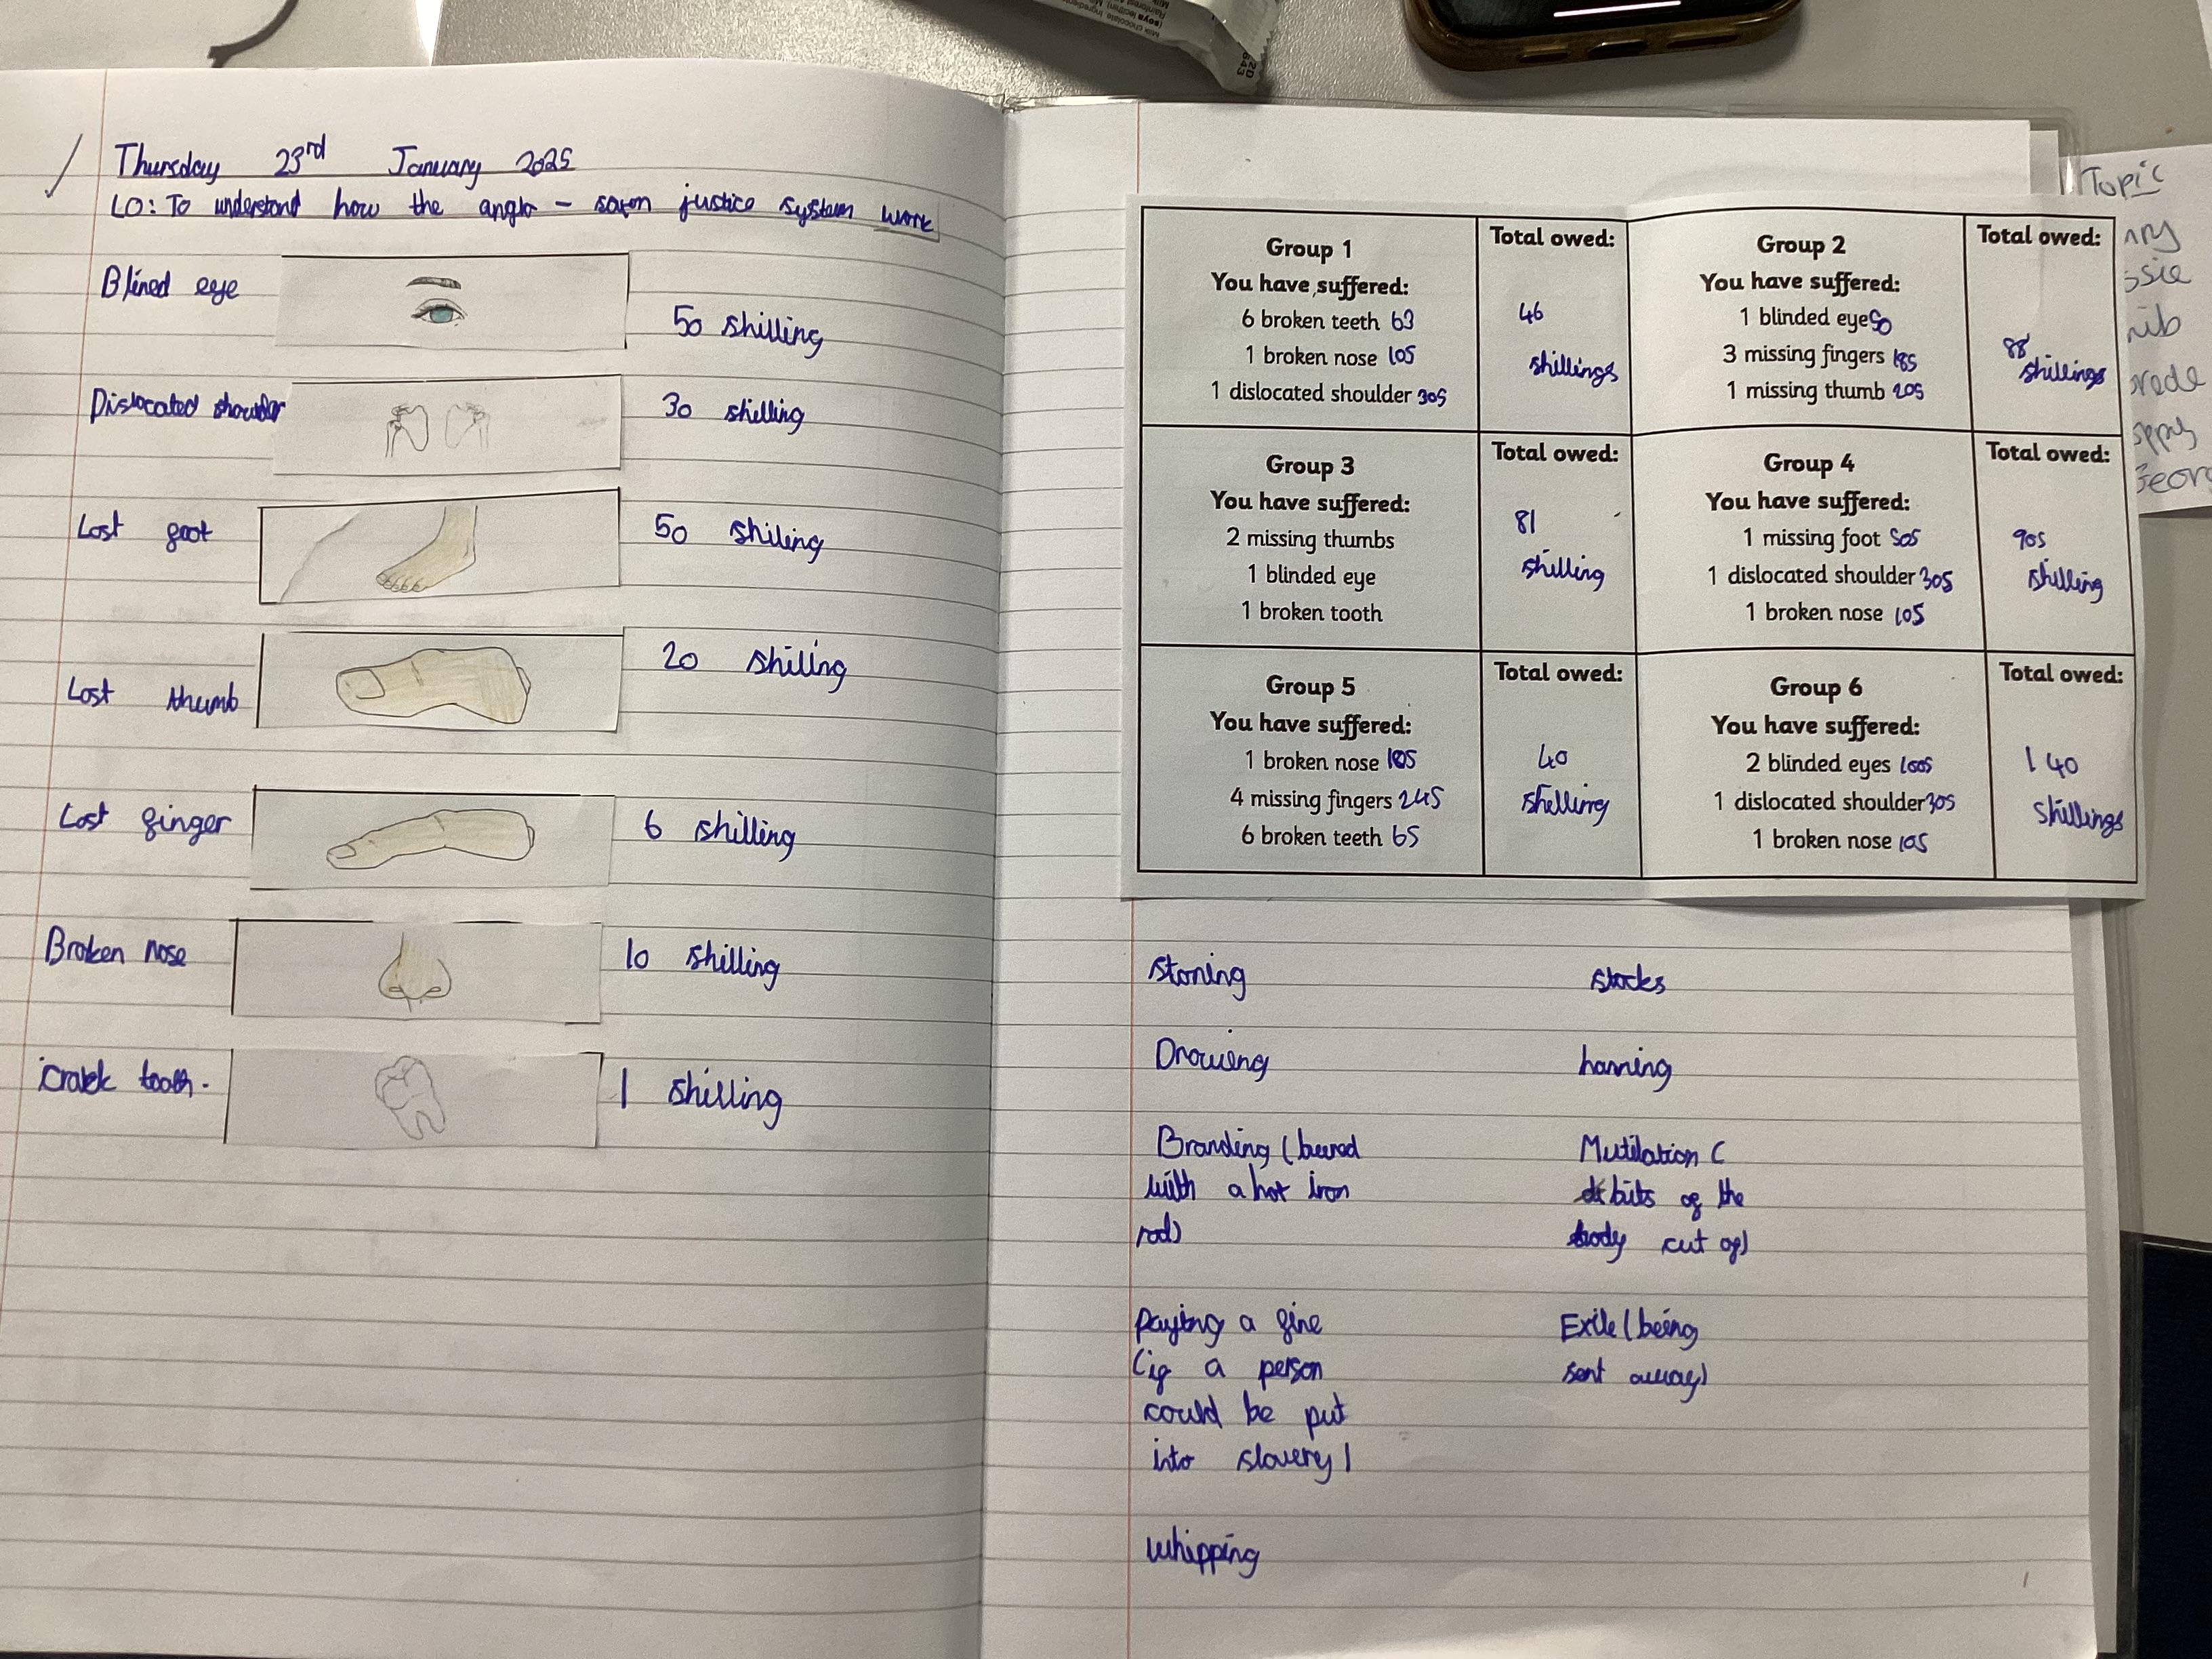 Thursday 23rd January 2025
LO: To understand how the anglo - saxon justice system work
Blined eye
50 shilling
Dislocated shoulder
30 shilling
Lost foot
50 shiling
Lost thumb
20 shiling
Lost finger
6 shilling
Broken nose
10 shilling
crack tooth.
1 shilling
Group 1
You have suffered:
6 broken teeth 6s
1 broken nose 10s
1 dislocated shoulder 30s
Total owed:
46
shillings
Group 2
You have suffered:
1 blinded eye 50
3 missing fingers 18s
1 missing thumb 20s
Total owed:
88
shillings
Group 3
You have suffered:
2 missing thumbs
1 blinded eye
1 broken tooth
Total owed:
81
shilling
Group 4
You have suffered:
1 missing foot 50s
1 dislocated shoulder 30s
1 broken nose 10s
Total owed:
90s
shilling
Group 5
You have suffered:
1 broken nose 10s
4 missing fingers 24s
6 broken teeth 6s
Total owed:
40
shelling
Group 6
You have suffered:
2 blinded eyes 100s
1 dislocated shoulder 30s
1 broken nose 10s
Total owed:
140
shillings
stoning
Drowing
Branding (bured
with a hot iron
rod)
paying a fine
(if a person
could be put
into slavery)
whipping
stocks
hanning
Mutilation (
bits of the
body cut of)
Exile (being
sent away)
Topic